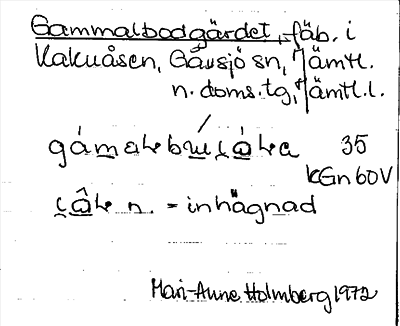 Gammalbodgärdet, fäb. i
Kakuåsen, Gåxsjö sn, Jämtl.
n. doms.tg, Jämtl.l.
35
kGn 60V
n. = inhägnad
Mari-Anne Holmberg 1972